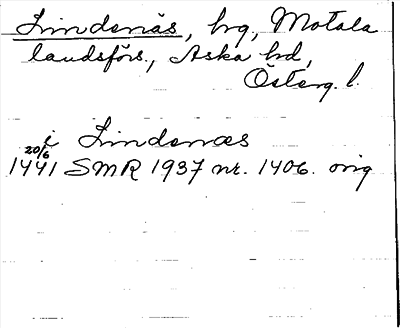 Lindenäs, hrg, Motala
landsförs., Aska hd,
Österg. l.
i Lindenæs
20/6
1441 SMR 1937 nr. 1406. orig